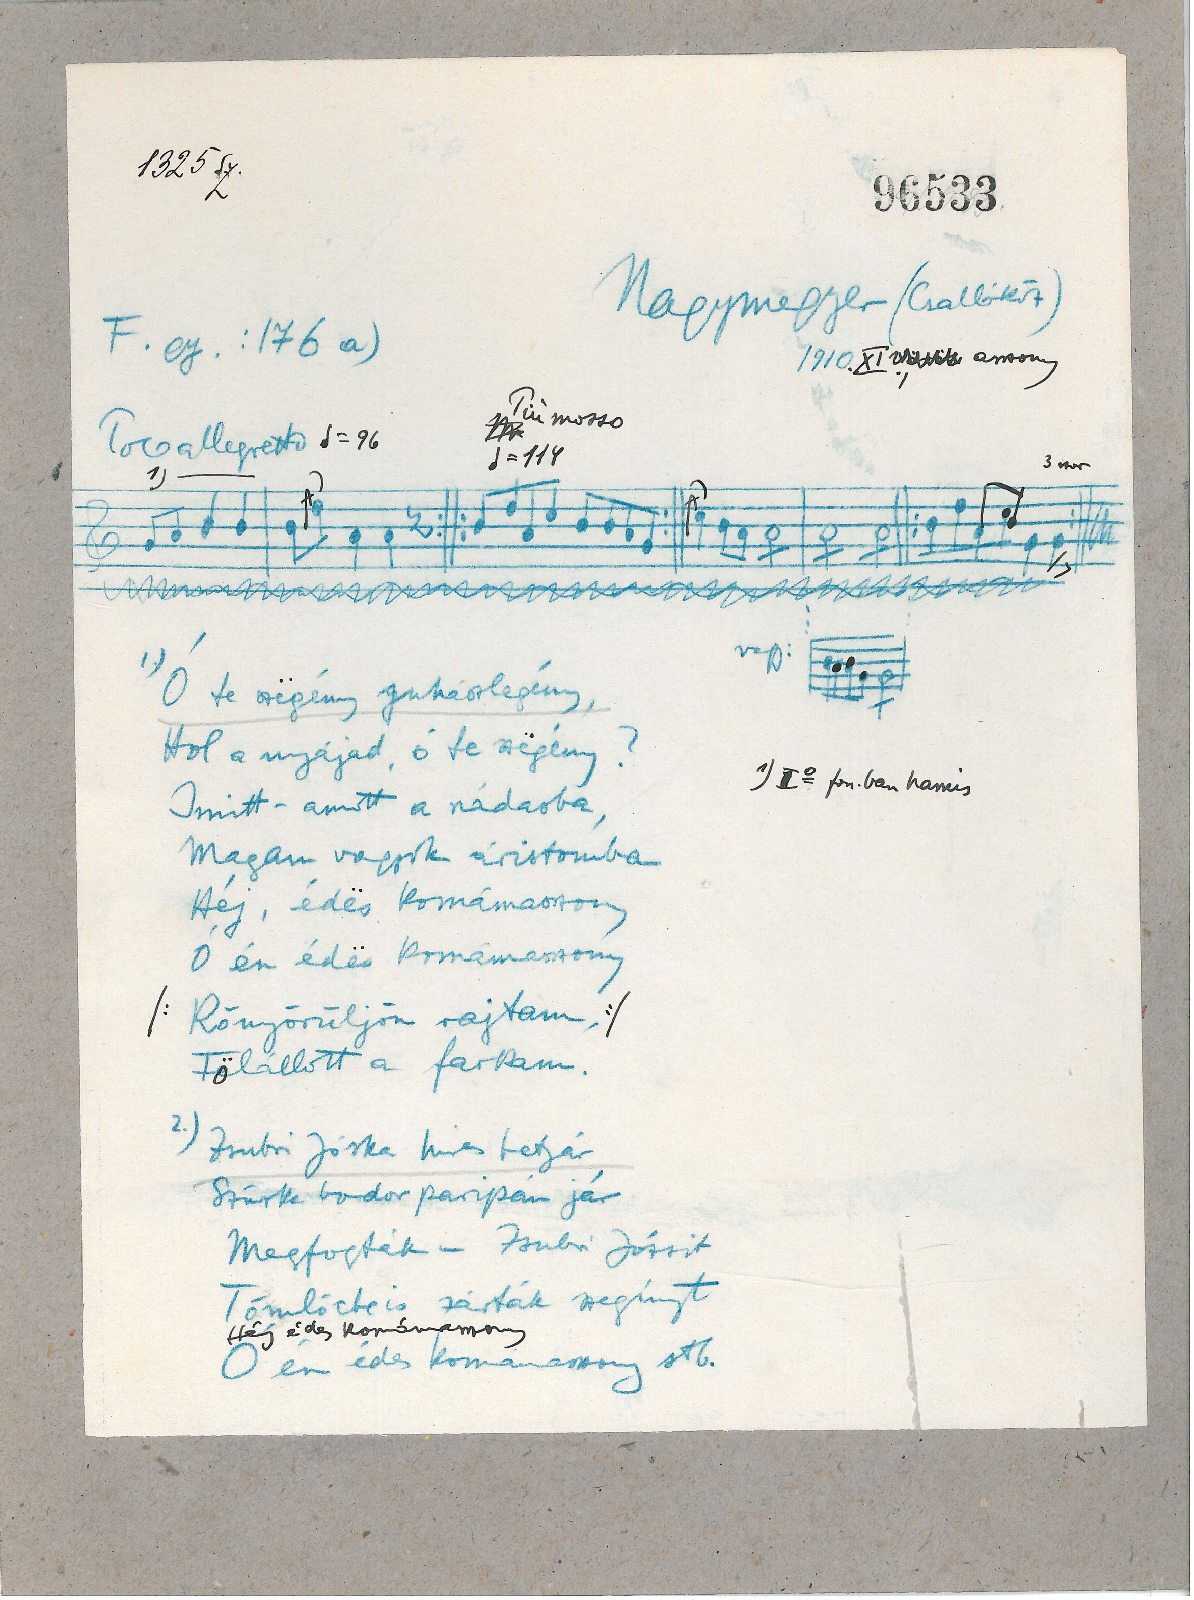 1325 sz.
96533
Nagymegyer (Csallóköz)
F. gy. : 176 a)
1910. XI., asszony
Poco allegretto ♩= 96
Più mosso
♩= 114
1)
3 szor
vagy:
1) Ó te szëgény juhászlegény,
Hol a nyájad, ó te szëgény?
Imitt - amott a nádasba,
Magam vagyok áristomba
Héj, édës komámasszony
Ó én édës komámasszony
/: Könyörüljön rajtam, :/
Fölállott a farkam.
1) I⁰ fon.ban hamis
2.) Zsubri Jóska hires betyár
Szürke bodor paripán jár
Megfogták - Zsubri Jóssit
Tömlöcbe is zárták szegínyt
Héj édes komámasszony
Ó én édes komámasszony stb.